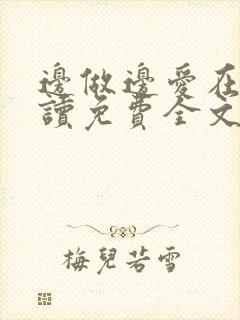 邊做邊愛在
讀免費全文
梅兒若雪